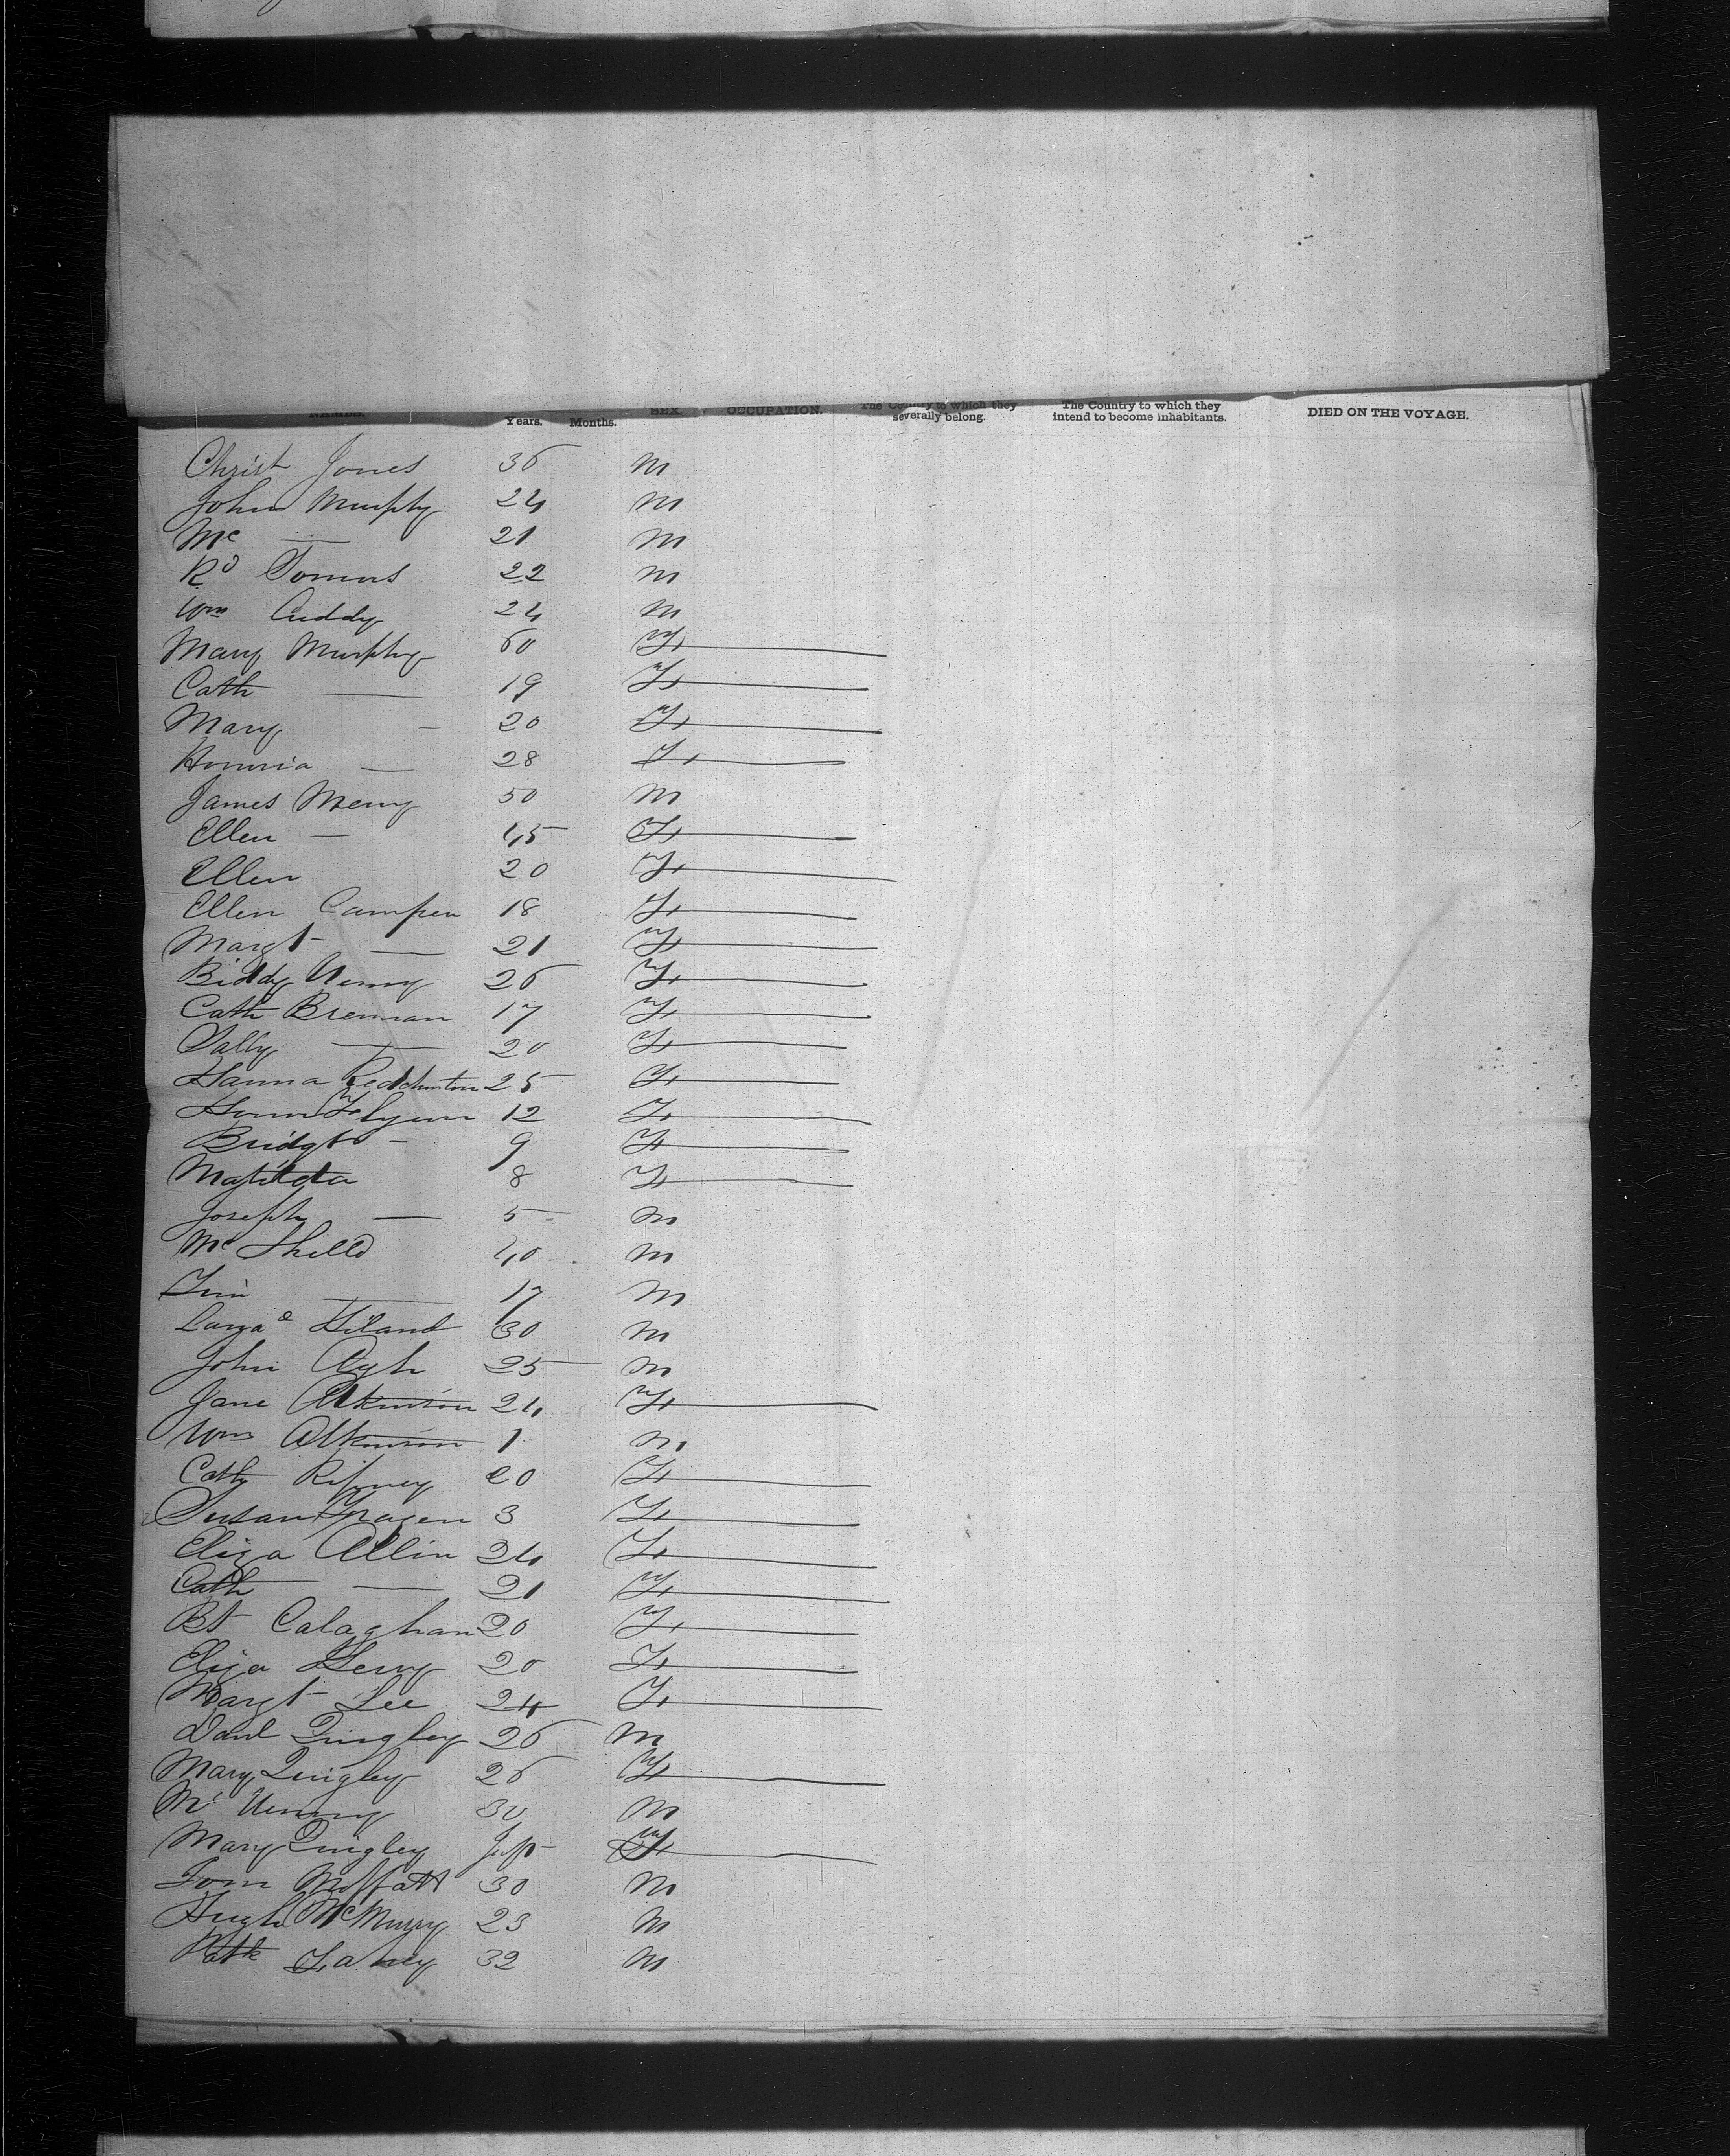 NAMES. Years. Months. SEX. OCCUPATION. The Country to which they severally belong. The Country to which they intend to become inhabitants. DIED ON THE VOYAGE.
Christ Jones 36 M
John Murphy 24 M
Mc — 21 M
Rd 22 M
Wm Cuddy 24 M
Mary Murphy 60 F
Cath — 19 F
Mary — 20 F
Honoria — 28 F
James Meny 50 M
Ellen — 45 F
Ellen 20 F
Ellen Campen 18 F
Margt — 21 F
Biddy 26 F
Cath Brennan 17 F
Sally — 20 F
Hanna 25 F
12 F
Bridgt - 9 F
Matilda 8 F
Joseph — 5 M
Mc 40 M
Tim — 17 M
Hiland 30 M
John 25 M
Jane Atkinson 24 M
Wm Atkinson 1 M
Cath 20 F
Susan 3 F
Eliza Allin 24 F
Cath — 21 F
Bt Calaghan 20 F
Eliza 20 F
Margt Lee 24 F
Danl Quigley 26 M
Mary Quigley 26 F
30 M
Mary Quigley F
Tom Moffatt 30 M
Hugh McMurry 23 M
Patk 32 M